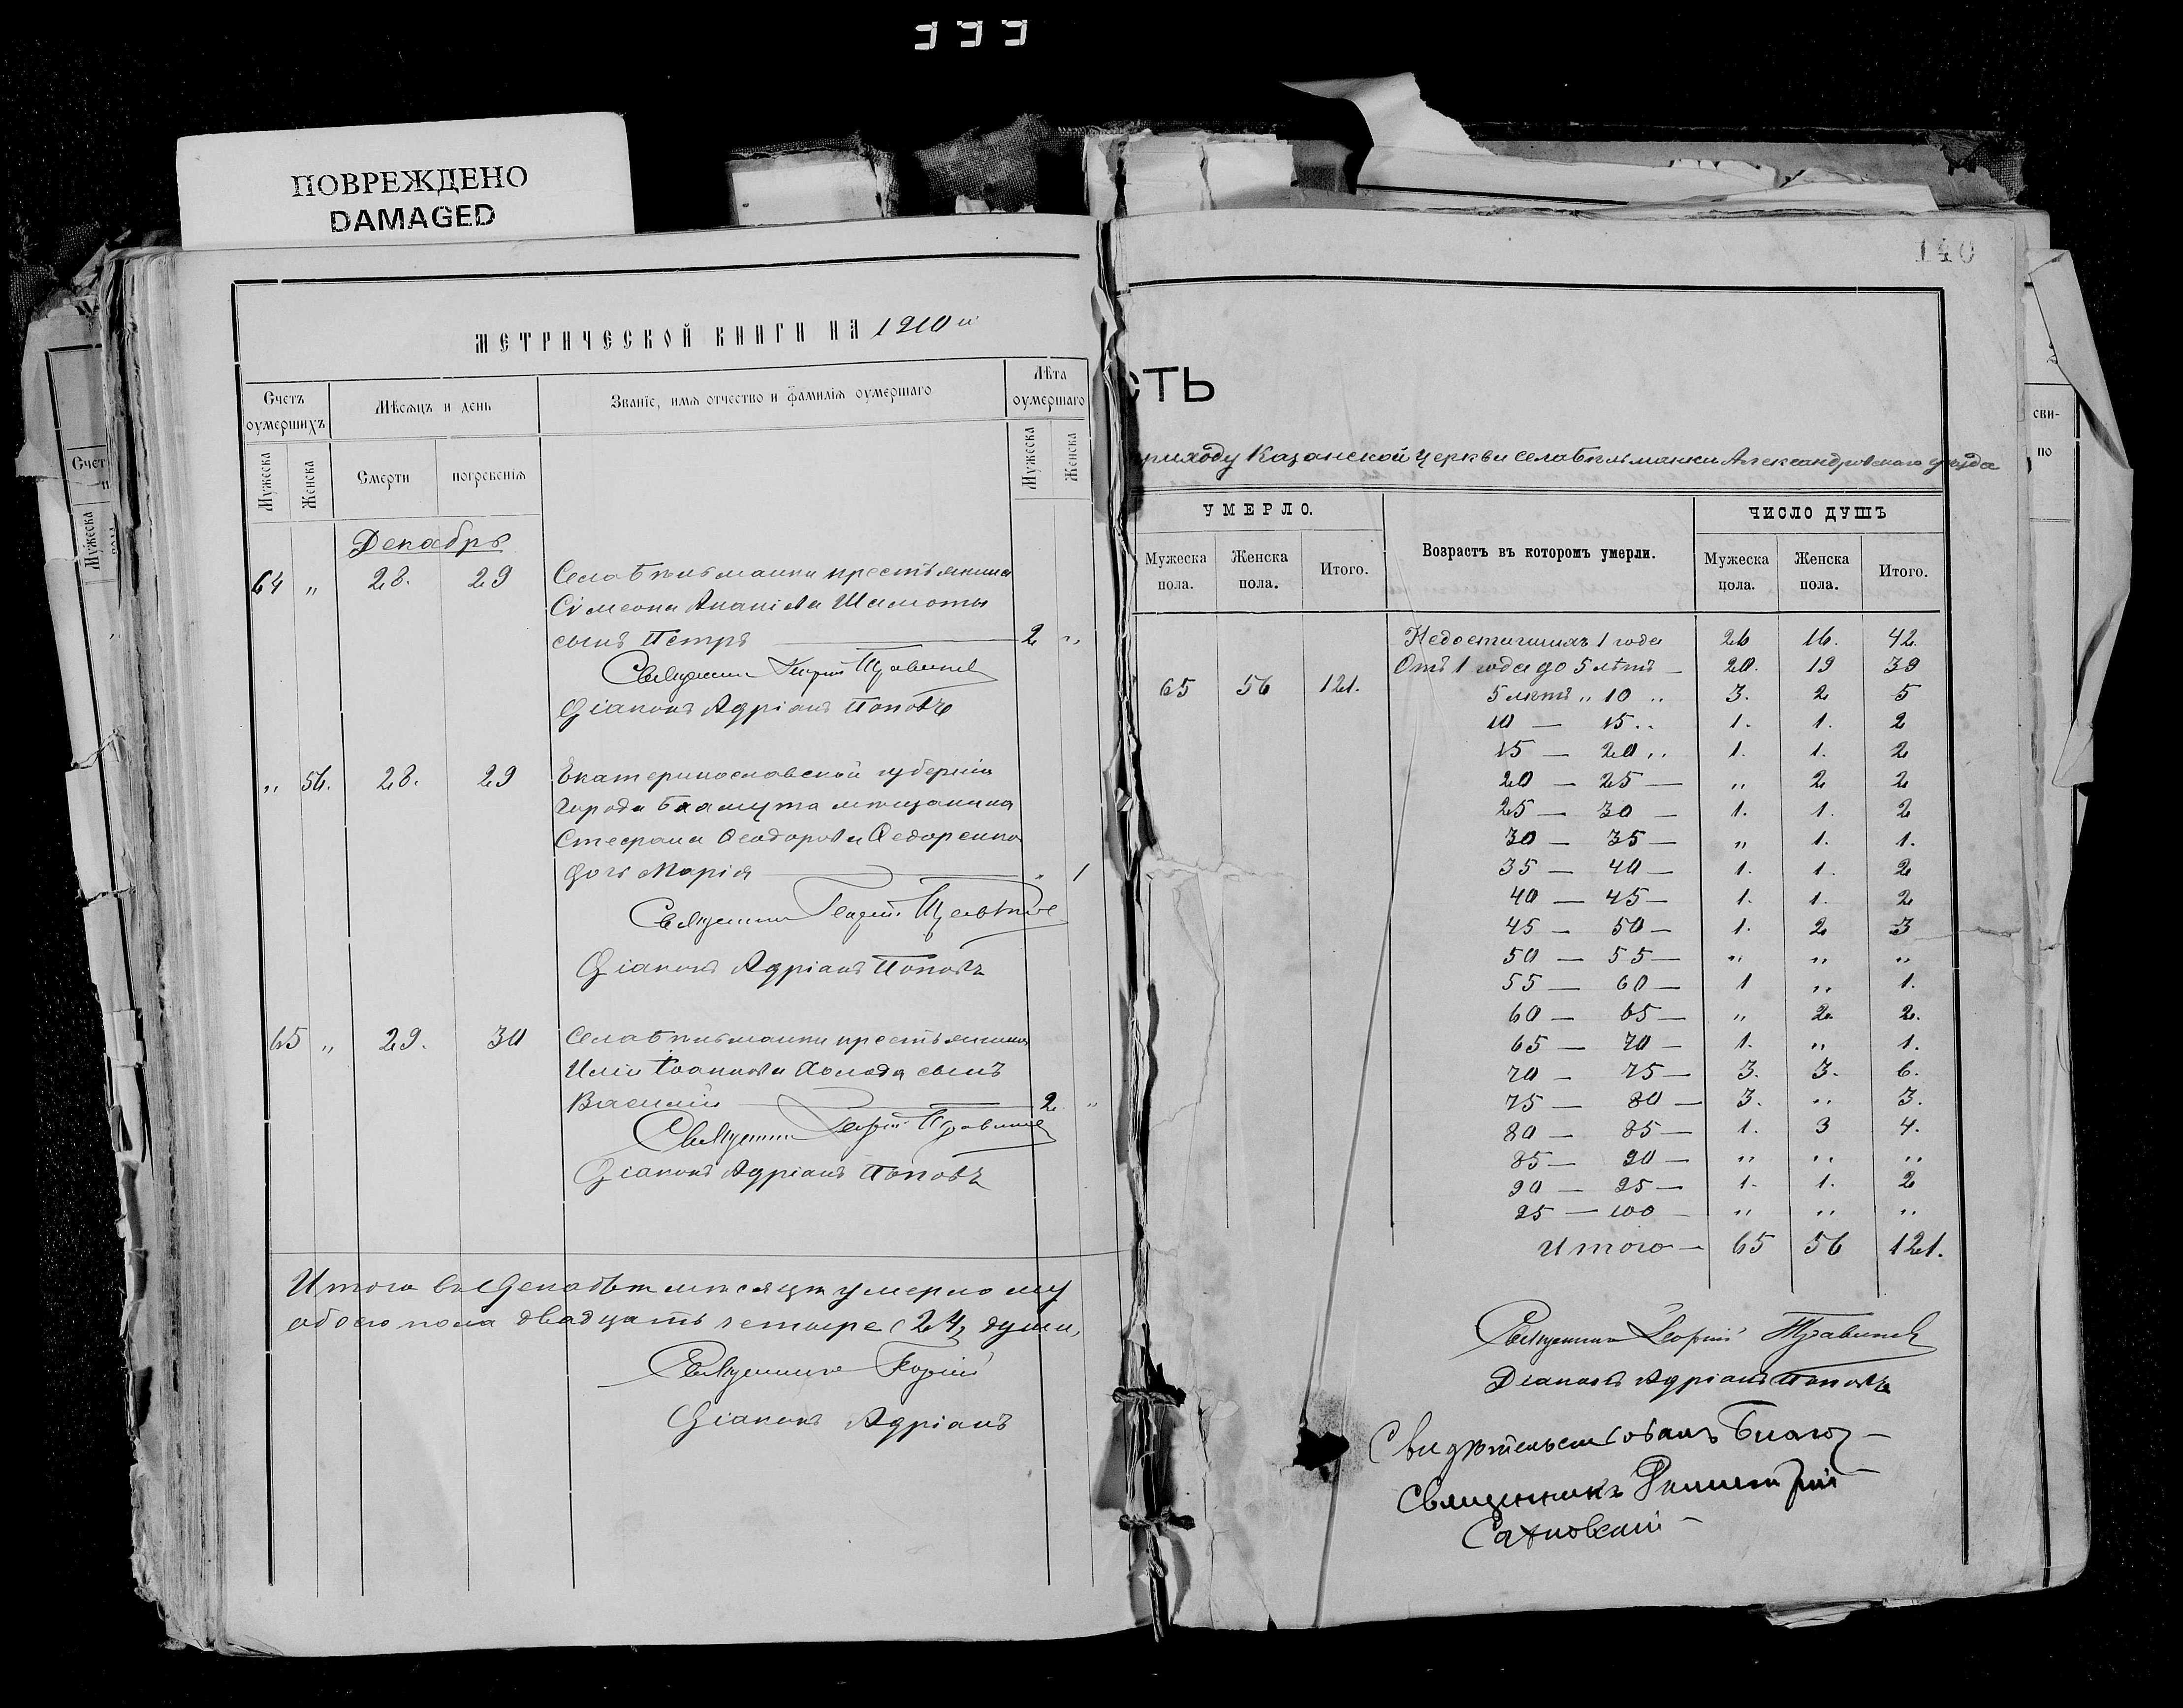 399
ПОВРЕЖДЕНО
DAMAGED
МЕТРИЧЕСКОЙ КНИГИ НА 1910 й
Счетъ оумершихъ
Мѣсяцъ и день
Званіе, имя отчество и фамилія оумершаго
Лѣта оумершаго
Мужеска
Женска
Смерти
погребенія
Мужеска
Женска
Декабрь
64 „ 28. 29 Села Бѣльманки крестьянина
Сімеона Ананіева Шамоты
сынъ Петръ — 2 „
Священникъ Георгій
Діаконъ Адріанъ Поповъ
„ 56. 28. 29 Екатеринославской губерніи
города Бахмута мѣщанина
Стефана Ѳеодорова Ѳедоренко
дочь Марія — „ 1
Священникъ Георгій
Діаконъ Адріанъ Поповъ
65 „ 29. 30 Села Бѣльманки крестьянина
Иліи Іоаннова Холода сынъ
Василій — 2 „
Священникъ Георгій
Діаконъ Адріанъ Поповъ
Итого въ Декабрѣ мѣсяцѣ умерло му
обоего пола двадцать четыре (24) души,
Священникъ Георгій
Діаконъ Адріанъ
140
СТЬ
приходу Казанской церкви села Бѣльманки Александровскаго уѣзда
УМЕРЛО.
Возрастъ въ которомъ умерли.
ЧИСЛО ДУШЪ
Мужеска пола.
Женска пола.
Итого.
Мужеска пола.
Женска пола.
Итого.
65 56 121.
Недостигшихъ 1 года 26 16. 42.
Отъ 1 года до 5 лѣтъ — 20. 19 39
5 лѣтъ „ 10 „ 3. 2 5
10 — 15 „ 1. 1. 2
15 — 20 „ 1. 1. 2
20 — 25 — „ 2 2
25 — 30 — 1. 1. 2
30 — 35 — „ 1. 1.
35 — 40 — 1. 1. 2
40 — 45 — 1. 1. 2
45 — 50 — 1. 2 3
50 — 55 — „ „ „
55 — 60 — 1 „ 1.
60 — 65 — „ 2. 2.
65 — 70 — 1. „ 1.
70 — 75 — 3. 3. 6.
75 — 80 — 3. „ 3.
80 — 85 — 1. 3 4.
85 — 90 — „ „ „
90 — 95 — 1. 1. 2
95 — 100 — „ „ „
Итого — 65 56 121.
Священникъ Георгій
Діаконъ Адріанъ Поповъ
Свидѣтельствовалъ Благоч.
Священникъ Димитрій
Сахновскій
Счет
Мужеска
сви-
по